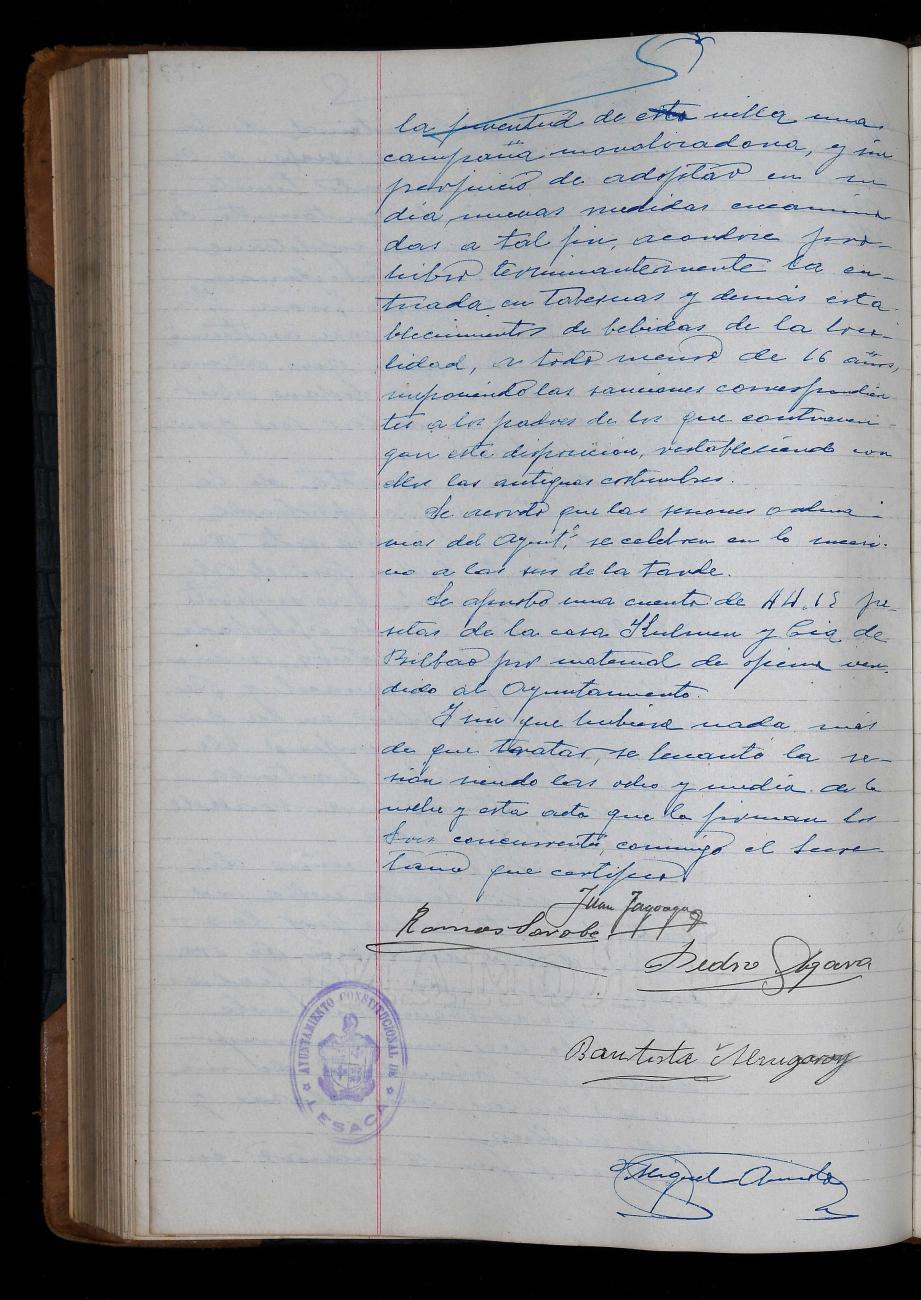 la juventud de esta villa una
campaña moralizadora, y sin
perjuicio de adoptar en su
día nuevas medidas encamina
das a tal fin, acordose pro-
hibir terminantemente la en-
trada en tabernas y demás esta
blecimientos de bebidas de la loca-
lidad, a todo menor de 16 años,
imponiendo las sanciones correspondien-
tes a los padres de los que contraven-
gan esta disposición, restableciendo con
ellos las antiguas costumbres.
Se acordó que las sesiones ordina-
rias del Ayunt.º, se celebren en lo sucesi-
vo a las seis de la tarde.
Se aprobó una cuenta de 44.15 pe-
setas de la casa y Cia de
Bilbao por material de oficina ven-
dido al Ayuntamiento.
Y sin que hubiese nada más
de que tratar, se levantó la se-
sión siendo las ocho y media de la
noche y esta acta que la firman los
Sres concurrentes, conmigo el Secre-
tario que certifico
Juan Jagoaga
Ramón Sarobe
Pedro
Bautista
Miguel
AYUNTAMIENTO CONSTITUCIONAL DE
LESACA